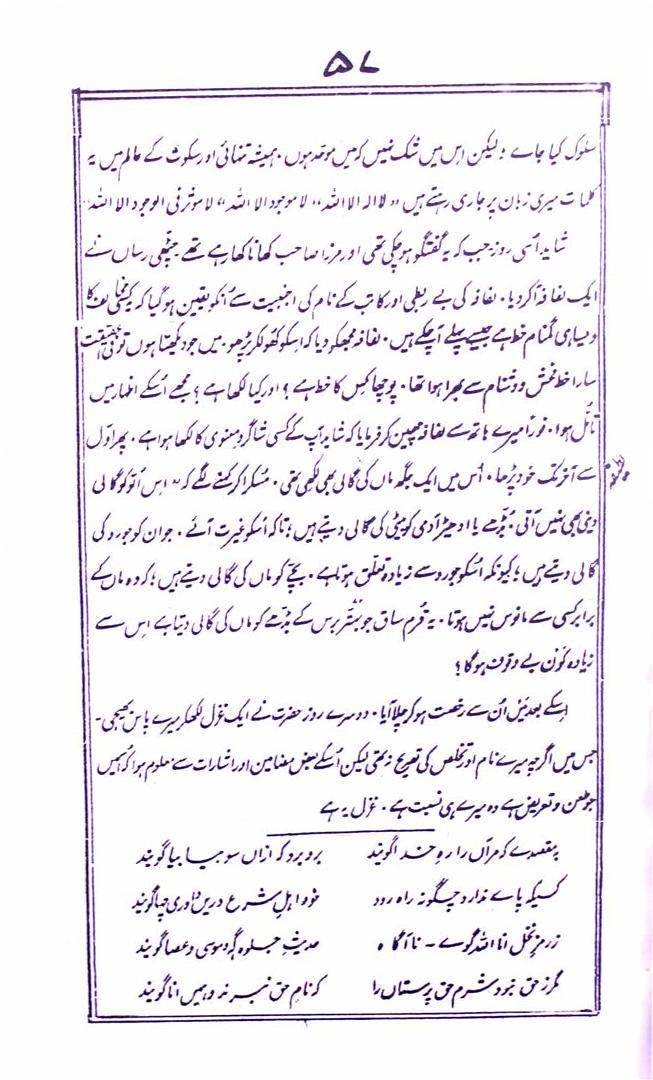 ۵۷
سلوک کیا جاے ؛ لیکن اِس میں شک نہیں کہ میں موحّد ہوں ۔ ہمیشہ تنہائی اور سکوت کے عالم میں یہ
کلمات میری زبان پر جاری رہتے ہیں ” لا الہ الا اللہ “ لا موجود الا اللہ “ لا مؤثر فی الوجود الا اللہ
شاید اُسی روز جب کہ یہ گفتگو ہو چکی تھی اور مرزا صاحب کھانا کھا رہے تھے چٹھی رساں نے
ایک لفافہ آکر دیا ۔ لفافہ کی بے ربطی اور کاتب کے نام کی اجنبیت سے اُنکو یقین ہو گیا کہ یہ کسی مخالف کا
ویسا ہی گمنام خط ہے جیسے پہلے آ چکے ہیں ۔ لفافہ مجھکو دیا کہ اسکو کھولکر پڑھو ۔ میں جو دیکھتا ہوں تو فی الحقیقت
سارا خط فحش و دشنام سے بھرا ہوا تھا ۔ پوچھا کِس کا خط ہے ؟ اور کیا لکھا ہے ؟ مجھے اُسکے اظہار میں
تأمّل ہوا ۔ فوراً میرے ہاتھ سے لفافہ چھین کر فرمایا کہ شاید آپ کے کسی شاگردِ معنوی کا لکھا ہوا ہے ۔ پھر اوّل
سے آخر تک خود پڑھا ۔ اُس میں ایک جگہ ماں کی گالی بھی لکھی تھی ۔ مُسکرا کر کہنے لگے کہ ” اس اُلّو کو گالی
لطیفہ
دینی بھی نہیں آتی ۔ بُڈّھے یا ادھیڑ آدمی کو بیٹی کی گالی دیتے ہیں ؛ تاکہ اُسکو غیرت آئے ۔ جوان کو جورو کی
گالی دیتے ہیں ؛ کیونکہ اُسکو جورو سے زیادہ تعلّق ہوتا ہے ۔ بچّے کو ماں کی گالی دیتے ہیں ؛ کہ وہ ماں کے
برابر کسی سے مانوس نہیں ہوتا ۔ یہ قُرم ساق جو بہتّر برس کے بُڈّھے کو ماں کی گالی دیتا ہے اِس سے
زیادہ کَون بے وقوف ہو گا ؟
اِسکے بعد مَیں اُن سے رخصت ہو کر چلا آیا ۔ دوسرے روز حضرت نے ایک غزل لکھکر میرے پاس بھیجی ۔
جس میں اگرچہ میرے نام اور تخلص کی تصریح نہ تھی لیکن اُسکے بعض مضامین اور اشارات سے معلوم ہوا کہ اِسمیں
جو طعن و تعریض ہے وہ میرے ہی نسبت ہے ۔ غزل یہ ہے
بمقصدے کہ مرآں را رہِ خدا گویند برو برو کہ ازاں سو بیا بیا گویند
کسیکہ پاے ندارد چگونہ راہ رود خود اہلِ شرع دریں داوری چہا گویند
زرمزِ نخلِ انا اللہ گوے - نا آگاہ حدیثِ جلوہ گہِ موسیٰ و عصا گویند
مگر زحق نبود شرم حق پرستاں را کہ نامِ حق نبرند و ہمیں انا گویند